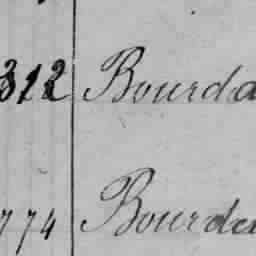 312 Bourda
774 Bourde